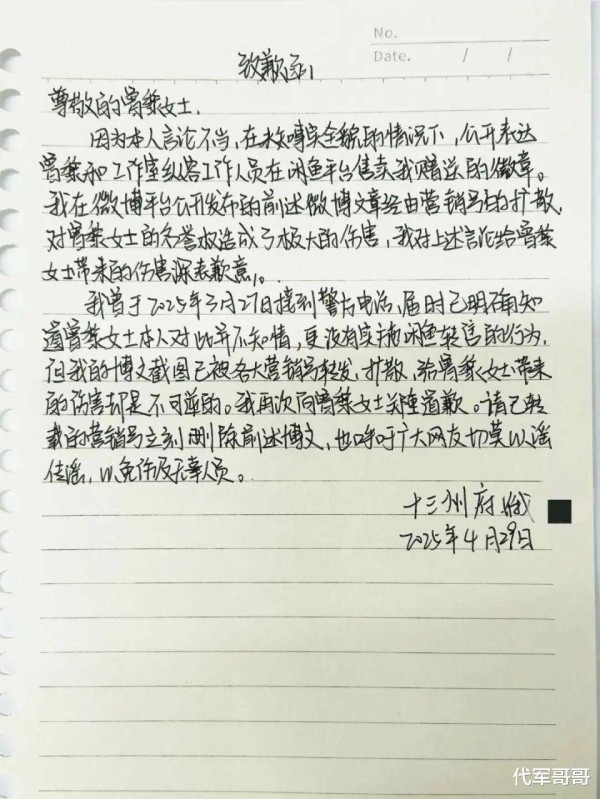 No.
Date. / /
致歉函
尊敬的曾黎女士.
因为本人言论不当,在未知事实全貌的情况下,公开表达
曾黎和工作室纵容工作人员在闲鱼平台售卖我赠送的徽章。
我在微博平台公开发布的前述微博文章经由营销号的扩散,
对曾黎女士的名誉权造成了极大的伤害,我对上述言论给曾黎
女士带来的伤害深表歉意。
我曾于2025年3月27日接到警方电话,届时已明确知
道曾黎女士本人对此并不知情,更没有实施闲鱼转售的行为,
但我的博文截图已被各大营销号转发、扩散,给曾黎女士带来
的伤害却是不可逆的。我再次向曾黎女士郑重道歉。请已转
载的营销号立刻删除前述博文,也呼吁广大网友切莫以谣
传谣,以免涉及无辜人员。
十三州府
2025年4月29日
代军哥哥